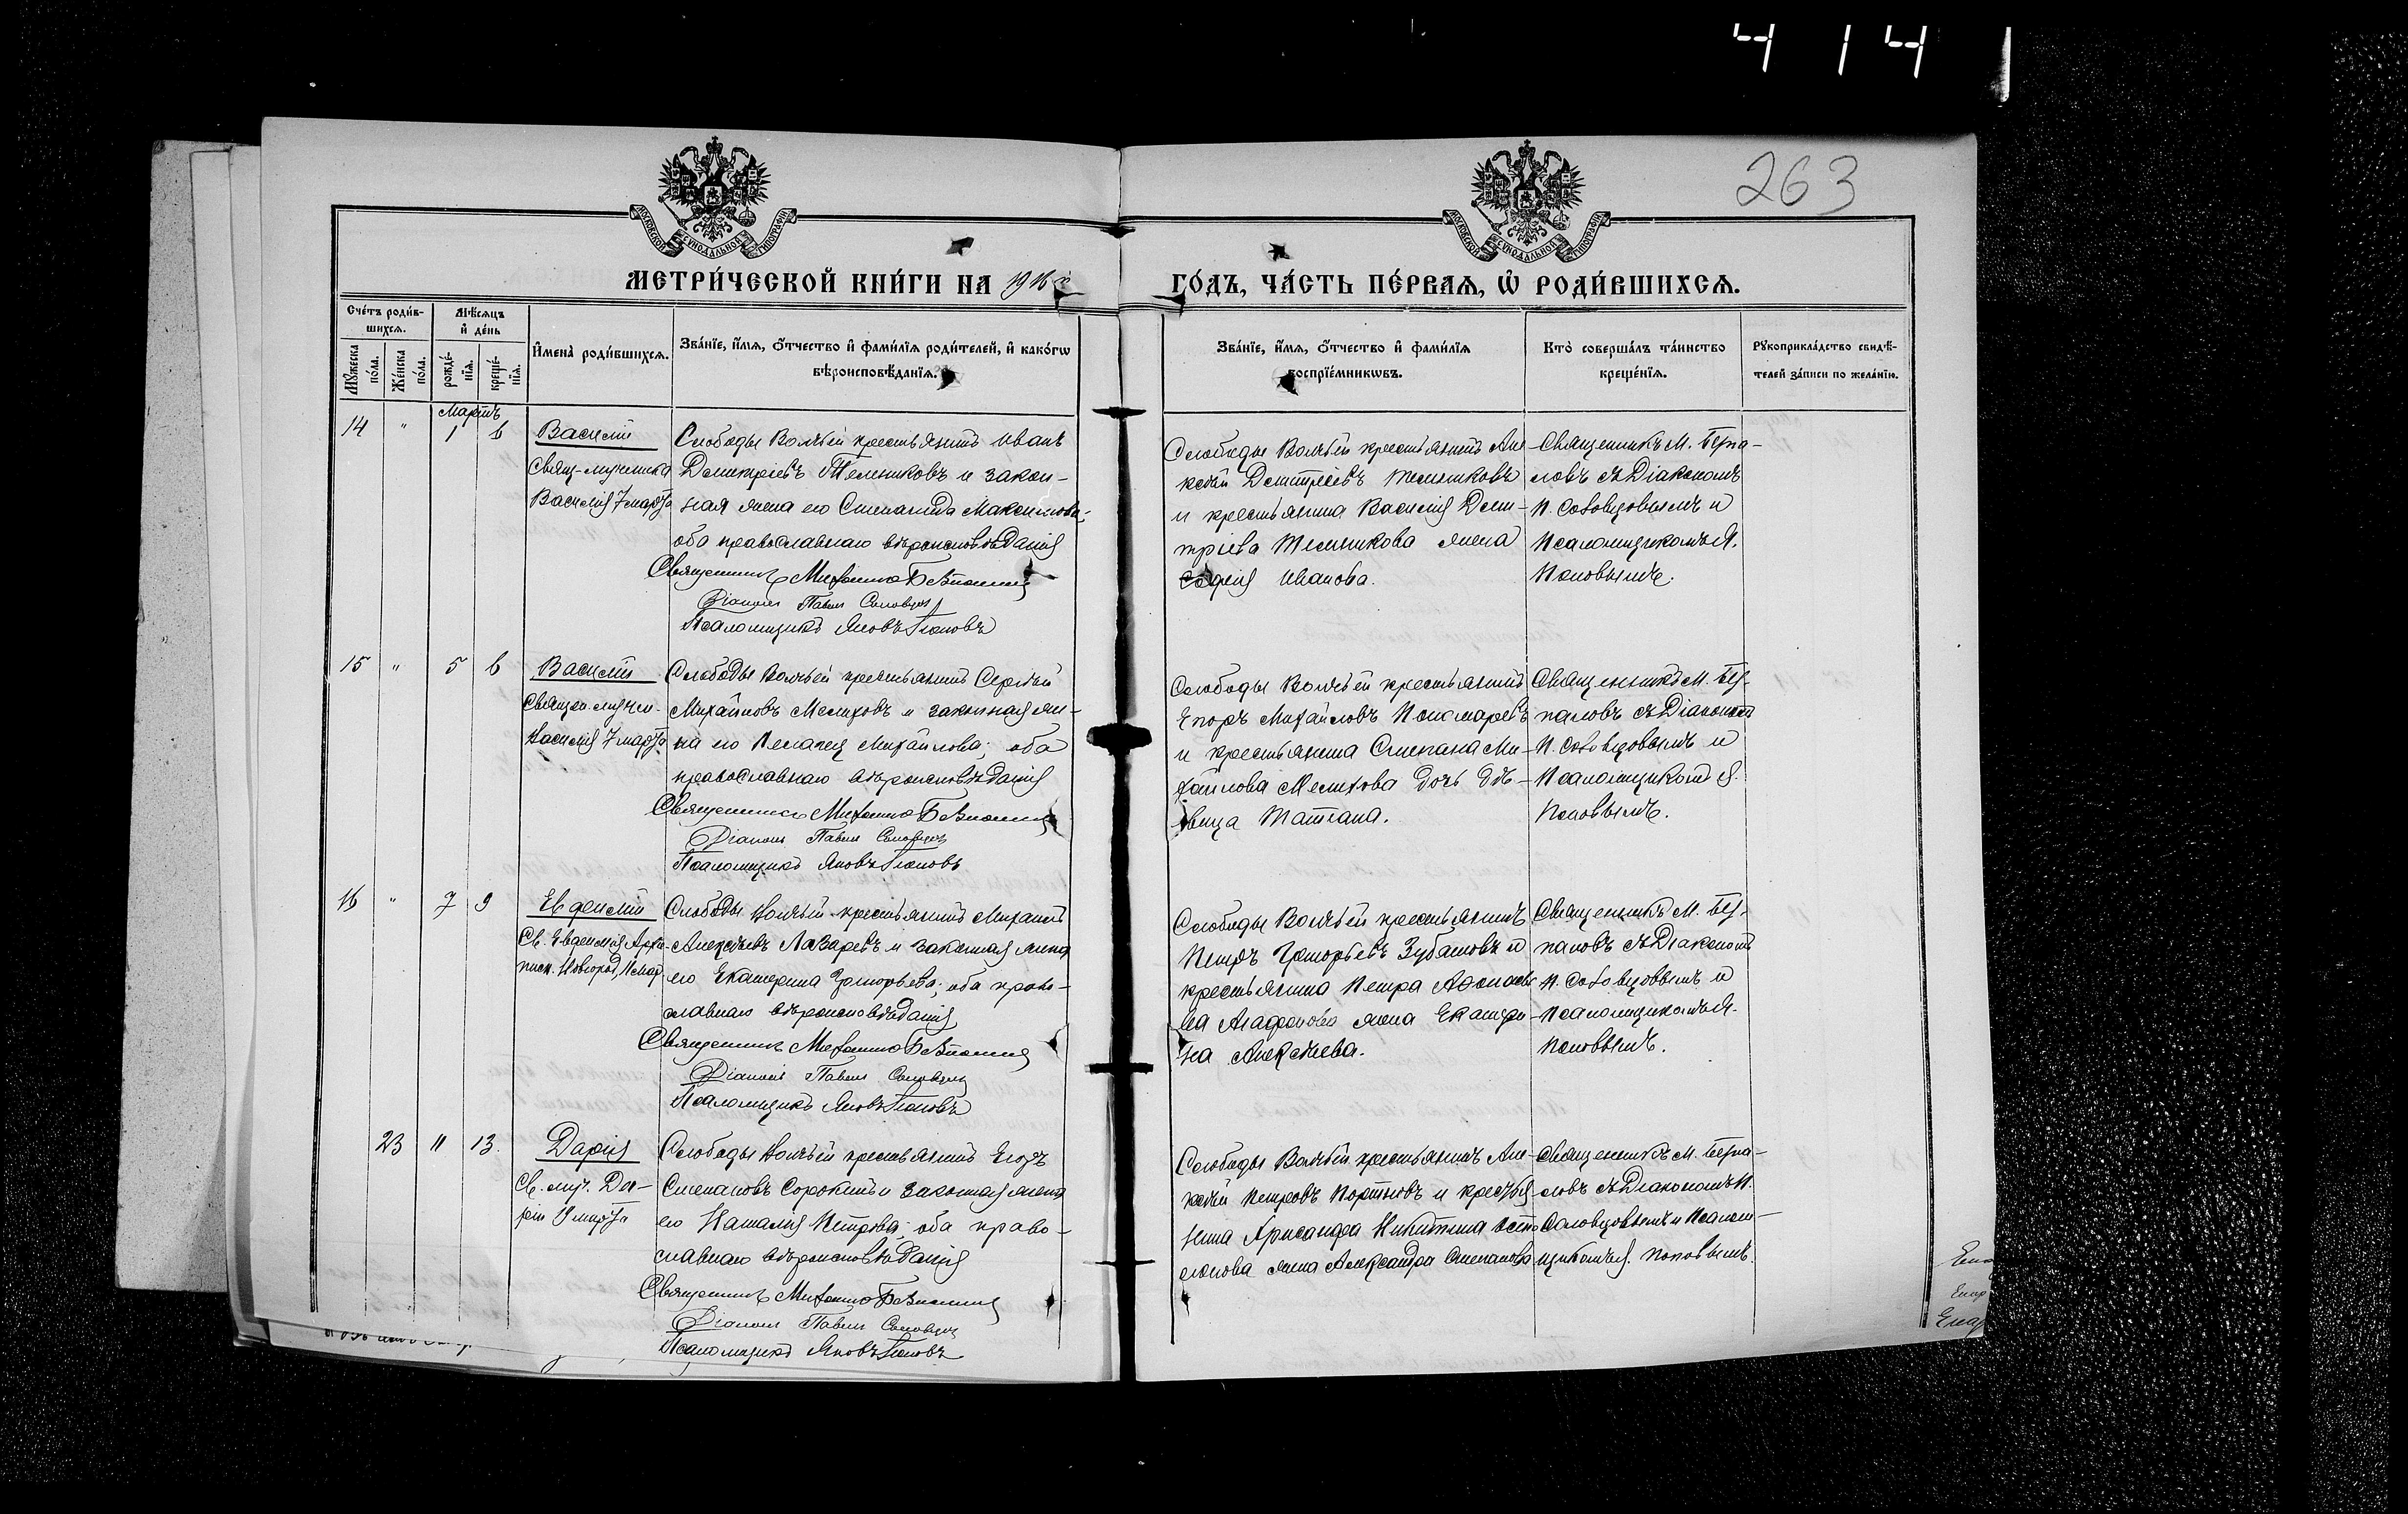 4 14
263
МОСКОВСКОЙ СУНОДАЛЬНОЙ ТИПОГРАФІИ
МОСКОВСКОЙ СУНОДАЛЬНОЙ ТИПОГРАФІИ
МЕТРИ́ЧЕСКОЙ КНИ́ГИ НА 1916 й
ГО́ДЪ, ЧА́СТЬ ПЕ́РВАЯ, Ѡ҆ РОДИ́ВШИХСЯ.
Сче́тъ роди́в-
шихся.
Мꙋ́жеска по́ла.
Же́нска по́ла.
Мѣ́сяцъ
и҆ де́нь
рожде́-
нїя.
креще́-
нїя.
И҆мена̀ роди́вшихся.
Зва́нїе, и҆́мя, ѻ҆́тчество и҆ фами́лїя роди́телей, и҆ како́гѡ
вѣроисповѣ́данїя.
Зва́нїе, и҆́мя, ѻ҆́тчество и҆ фами́лїя
воспрїе́мникѡвъ.
Кто̀ соверша́лъ та́инство
креще́нїя.
Рꙋкоприкла́дство свидѣ́-
телей за́писи по жела́нїю.
Мартъ
14 " 1 6
Василій
Свящ-мученика
Василія 7 марта
Слободы Волчьей крестьянинъ Иванъ
Димитріевъ Тельниковъ и закон-
ная жена его Степанида Максимова;
оба православнаго вѣроисповѣданія
Священникъ Михаилъ
Діаконъ Павелъ Соловцовъ
Псаломщикъ Яковъ Поповъ
Слободы Волчьей крестьянинъ Але-
ксѣй Димитріевъ Тельниковъ
и крестьянина Василія Дим-
тріева Тельникова жена
Софія Иванова.
Священникъ М.
съ Діакономъ
П. Соловцовымъ и
Псаломщикомъ Я.
Поповымъ.
15 " 5 6
Василій
Священ. мучен.
Василія 7 марта
Слободы Волчьей крестьянинъ Сергѣй
Михайловъ Мелиховъ и законная же-
на его Пелагея Михайлова; оба
православнаго вѣроисповѣданія
Священникъ Михаилъ
Діаконъ Павелъ Соловцовъ
Псаломщикъ Яковъ Поповъ
Слободы Волчьей крестьянинъ
Егоръ Михайловъ Пономаревъ
и крестьянина Степана Ми-
хайлова Мелихова дочь дѣ-
вица Татіана.
Священникъ М.
съ Діакономъ
П. Соловцовымъ и
Псаломщикомъ Я.
Поповымъ.
16 " 7 9
Евѳимій
Св. Евѳимія Архі-
писк. Новгород. 11 мар.
Слободы Волчьей крестьянинъ Михаилъ
Алексѣевъ Лазаревъ и законная жена
его Екатерина Григорьева; оба право-
славнаго вѣроисповѣданія
Священникъ Михаилъ
Діаконъ Павелъ Соловцовъ
Псаломщикъ Яковъ Поповъ
Слободы Волчьей крестьянинъ
Петръ Григорьевъ и
крестьянина Петра Аѳонасье-
ва Агафонова жена Екатери-
на Алексѣева.
Священникъ М.
съ Діакономъ
П. Соловцовымъ и
Псаломщикомъ Я.
Поповымъ.
23 11 13
Дарія
Св. муч. Да-
ріи 19 марта
Слободы Волчьей крестьянинъ Егоръ
Степановъ Сорокинъ и законная жена
его Наталія Петрова; оба право-
славнаго вѣроисповѣданія
Священникъ Михаилъ
Діаконъ Павелъ Соловцовъ
Псаломщикъ Яковъ Поповъ
Слободы Волчьей крестьянинъ Але-
ксѣй Петровъ и крестья-
нина Никитина
жена Александра Степанова
Священникъ М.
съ Діакономъ П.
Соловцовымъ и Псалом-
щикомъ Я. Поповымъ.